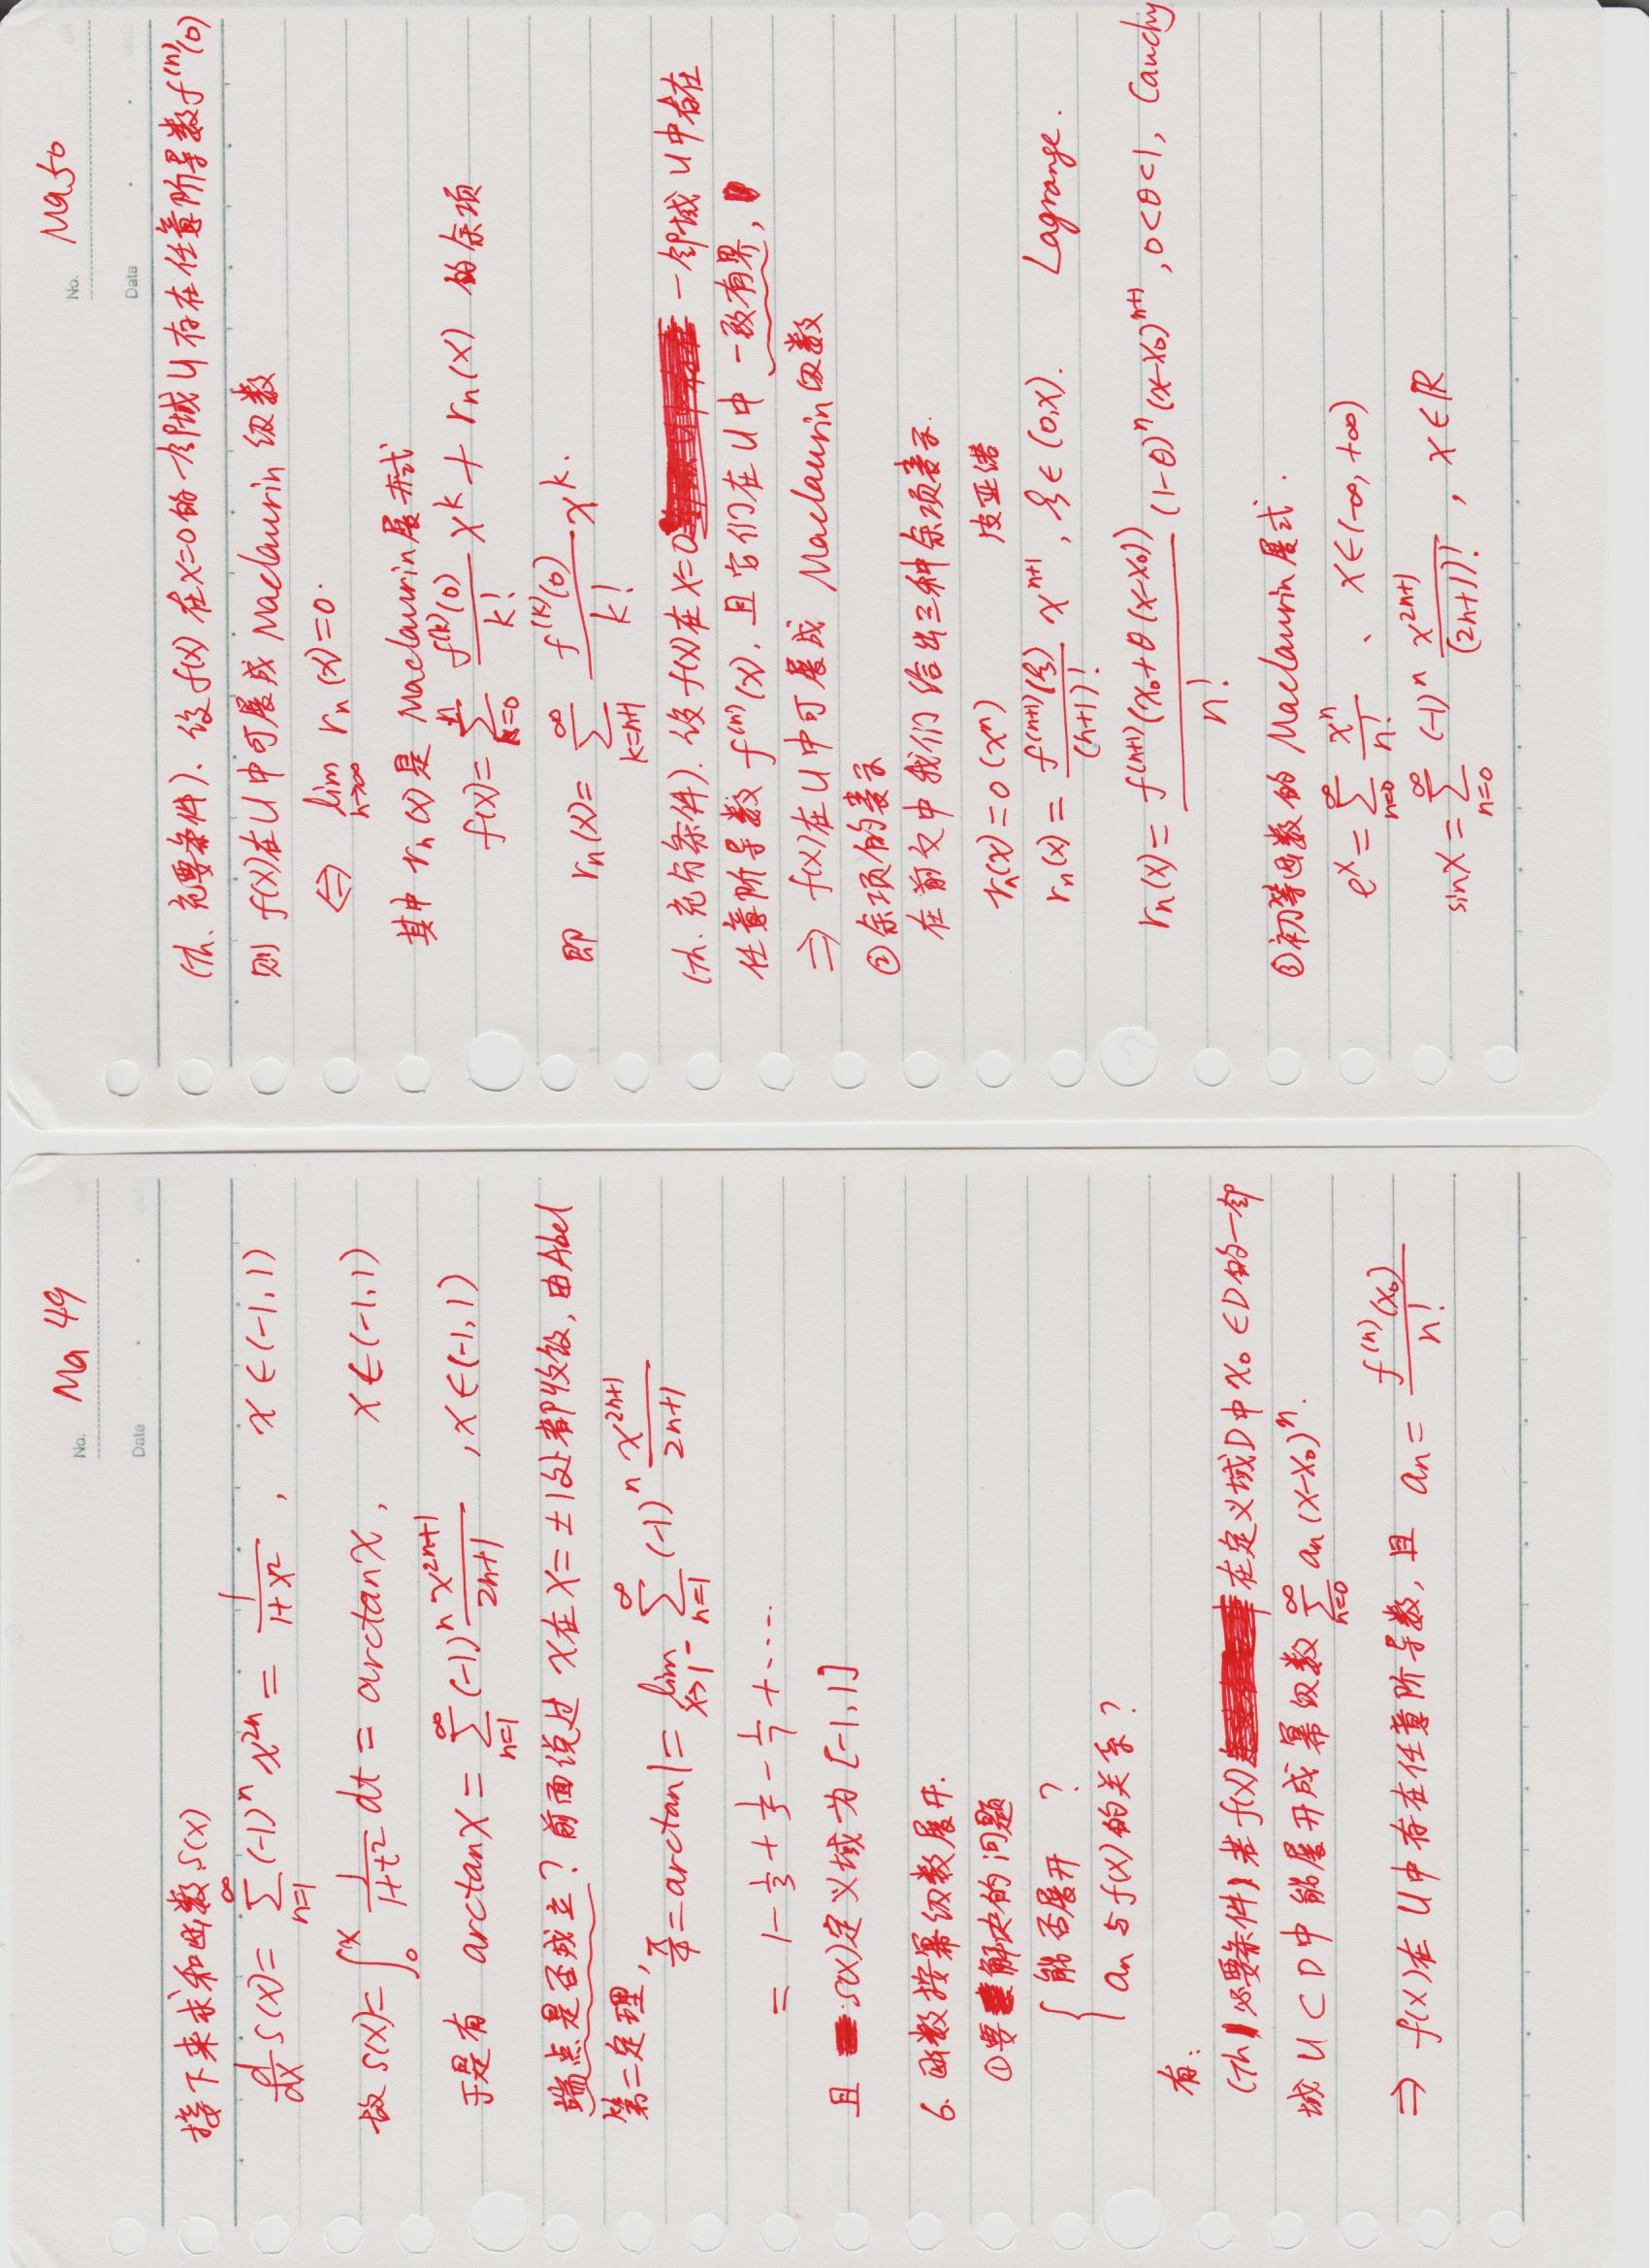 No. Ma 49
Date
接下来求和函数 S(x)
d/dx S(x) = ∑_{n=1}^{∞} (-1)^n x^{2n} = 1/(1+x²) , x ∈ (-1, 1)
故 S(x) = ∫_0^x 1/(1+t²) dt = arctan x , x ∈ (-1, 1)
于是有 arctan x = ∑_{n=1}^{∞} (-1)^n x^{2n+1}/(2n+1) , x ∈ (-1, 1)
端点是否成立? 前面说过 x 在 x = ±1 处都收敛, 由 Abel
第二定理,
π/4 = arctan 1 = lim_{x→1^-} ∑_{n=1}^{∞} (-1)^n x^{2n+1}/(2n+1)
= 1 - 1/3 + 1/5 - 1/7 + ····
且 S(x) 定义域为 [-1, 1]
6. 函数按幂级数展开.
① 要解决的问题
{ 能否展开 ?
a_n 与 f(x) 的关系?
有:
(Th 必要条件) 若 f(x) 在定义域 D 中 x_0 ∈ D 的一邻
域 U ⊂ D 中能展开成幂级数 ∑_{n=0}^{∞} a_n (x-x_0)^n.
⇒ f(x) 在 U 中存在任意阶导数, 且 a_n = f^{(n)}(x_0)/n!
No. Ma50
Date
(Th. 充要条件). 设 f(x) 在 x=0 的一邻域 U 存在任意阶导数 f^{(n)}(0)
则 f(x) 在 U 中可展成 Maclaurin 级数
⇔ lim_{n→∞} r_n(x) = 0.
其中 r_n(x) 是 Maclaurin 展开式
f(x) = ∑_{k=0}^{n} f^{(k)}(0)/k! x^k + r_n(x) 的余项
即 r_n(x) = ∑_{k=n+1}^{∞} f^{(k)}(0)/k! x^k.
(Th. 充分条件). 设 f(x) 在 x=0 一邻域 U 中存在
任意阶导数 f^{(n)}(x), 且它们在 U 中一致有界,
⇒ f(x) 在 U 中可展成 Maclaurin 级数
② 余项的表示
在前文中我们给出三种余项表示.
r_n(x) = o(x^n) 皮亚诺
r_n(x) = f^{(n+1)}(ξ)/(n+1)! x^{n+1} , ξ ∈ (0, x). Lagrange.
r_n(x) = f^{(n+1)}(x_0+θ(x-x_0))/n! (1-θ)^n (x-x_0)^{n+1} , 0<θ<1, Cauchy
③ 初等函数的 Maclaurin 展式.
e^x = ∑_{n=0}^{∞} x^n/n! 、 x ∈ (-∞, +∞)
sin x = ∑_{n=0}^{∞} (-1)^n x^{2n+1}/(2n+1)! , x ∈ ℝ